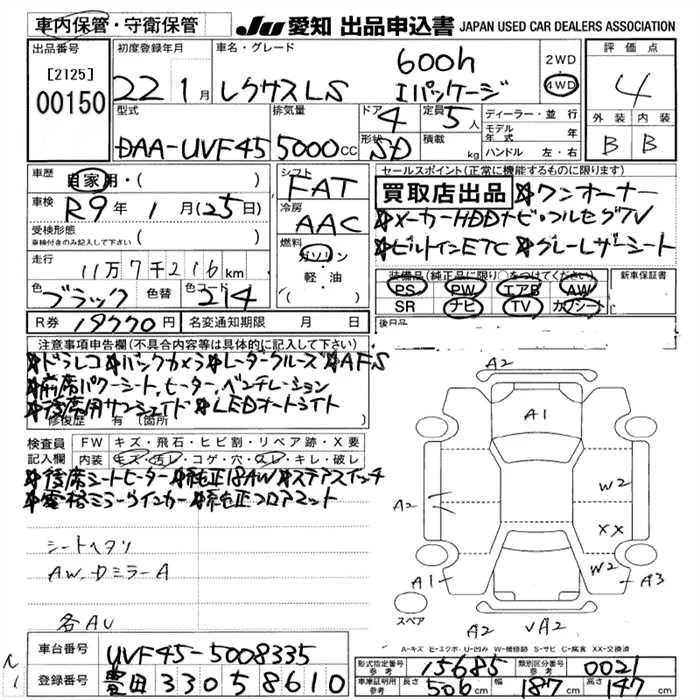 車内保管・守衛保管
JU 愛知 出品申込書 JAPAN USED CAR DEALERS ASSOCIATION
出品番号
[2125]
00150
初度登録年月
22 1月
車名・グレード
レクサスLS 600h Iパッケージ
2WD
4WD
評価点
4
外装 内装
B B
型式
DAA-UVF45
排気量
5000cc
ドア
4
定員
5人
形状
SD
積載
kg
ディーラー・並行
モデル年式
ハンドル 左・右
車歴
自家用・( )
車検 R9年 1月(25日)
受検形態
車検付きのみ記入して下さい ( )
走行
11万7千216km
色 ブラック 色替 色コード 214
R券 19770円 名変通知期限 月 日
シフト
FAT
冷房
AAC
燃料
ガソリン
・
軽・油
セールスポイント(正常に機能するものに限ります)
買取店出品 ☆ワンオーナー
☆メーカーHDDナビ・フルセグTV
☆ビルトインETC ☆グレーレザーシート
装備品(純正品に限り○をつけてください) 新車保証書
PS PW エアB AW
SR ナビ TV カワシート
後日品
注意事項申告欄(不具合内容等は具体的に記入して下さい)
☆ドラレコ ☆バックカメラ ☆レーダークルーズ ☆AFS
☆前席パワーシート、ヒーター、ベンチレーション
☆後席用サンシェイド ☆LEDオートライト
修復歴 有 (箇所
検査員記入欄
FW キズ・飛石・ヒビ割・リペア跡・X要
内装 キズ・汚レ・コゲ・穴・スレ・キレ・破レ
☆後席シートヒーター ☆純正18AW ☆ステアスイッチ
☆電格ミラーウインカー ☆純正フロアマット
シートヘタリ
AW、ドミラーA
各AU
A2
A1
A2
W2
XX
W2
A1
A3
スペア
A2 VA2
A-キズ E-エクボ U-凹み W-補修跡 S-サビ C-腐食 XX-交換済
車台番号
UVF45-5008335
登録番号
豊田 330 5 8610
形式指定番号 参考 15685 類別区分番号 参考 0021
車庫証明用 参考 長さ 506cm 幅 187cm 高さ 147cm